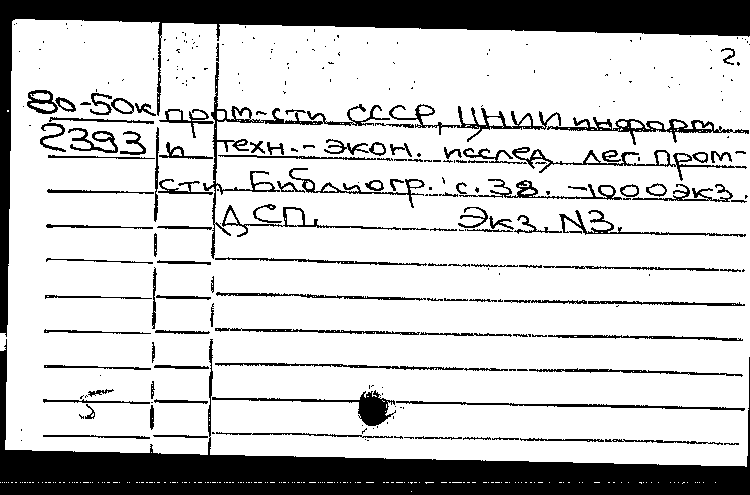 2.
80-50к пром-сти СССР, ЦНИИ информ.
2393 и техн.-экон. исслед. лег. пром-
сти. Библиогр.: с. 38. -1000 экз.
ДСП. Экз. N3.
5